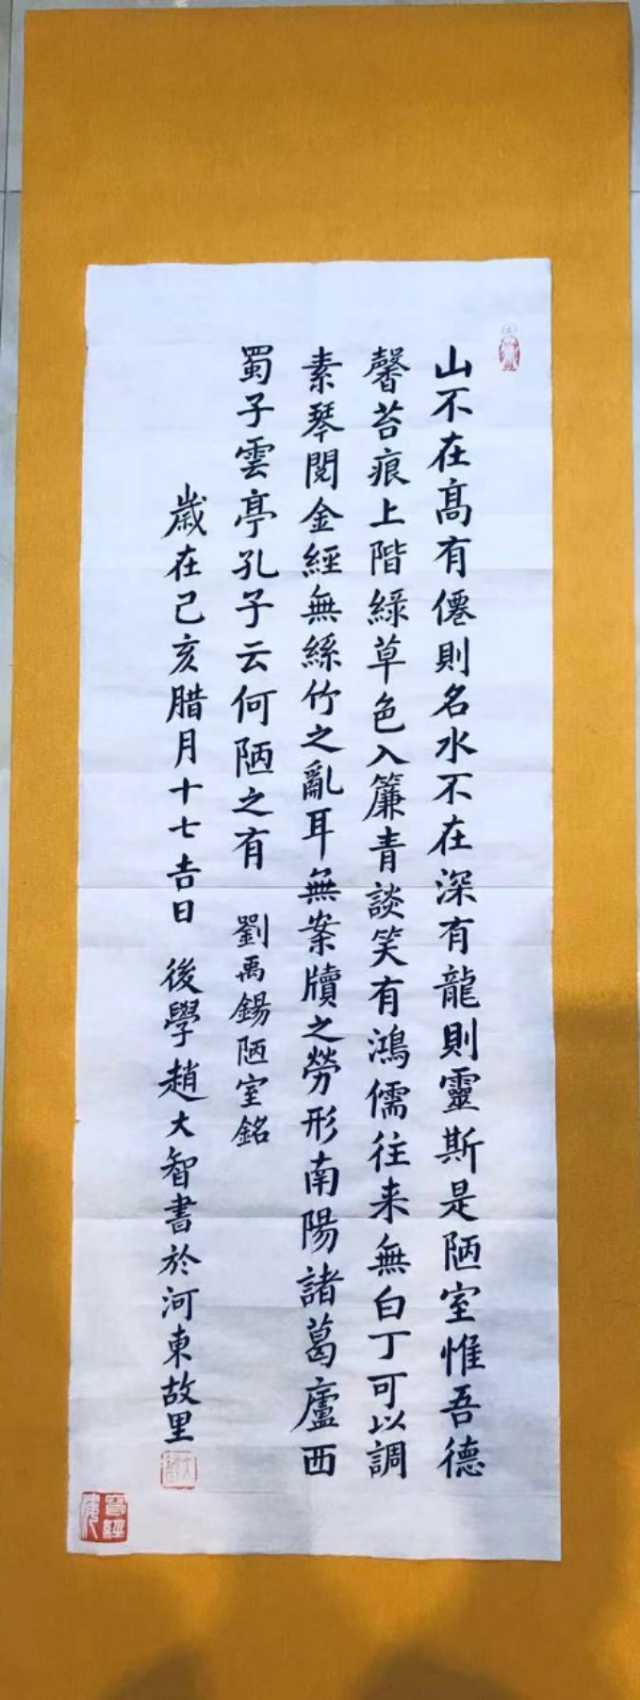 山不在高有僊則名水不在深有龍則靈斯是陋室惟吾德
馨苔痕上階綠草色入簾青談笑有鴻儒往来無白丁可以調
素琴閱金經無絲竹之亂耳無案牘之勞形南陽諸葛廬西
蜀子雲亭孔子云何陋之有 劉禹錫陋室銘
歲在己亥腊月十七吉日 後學趙大智書於河東故里